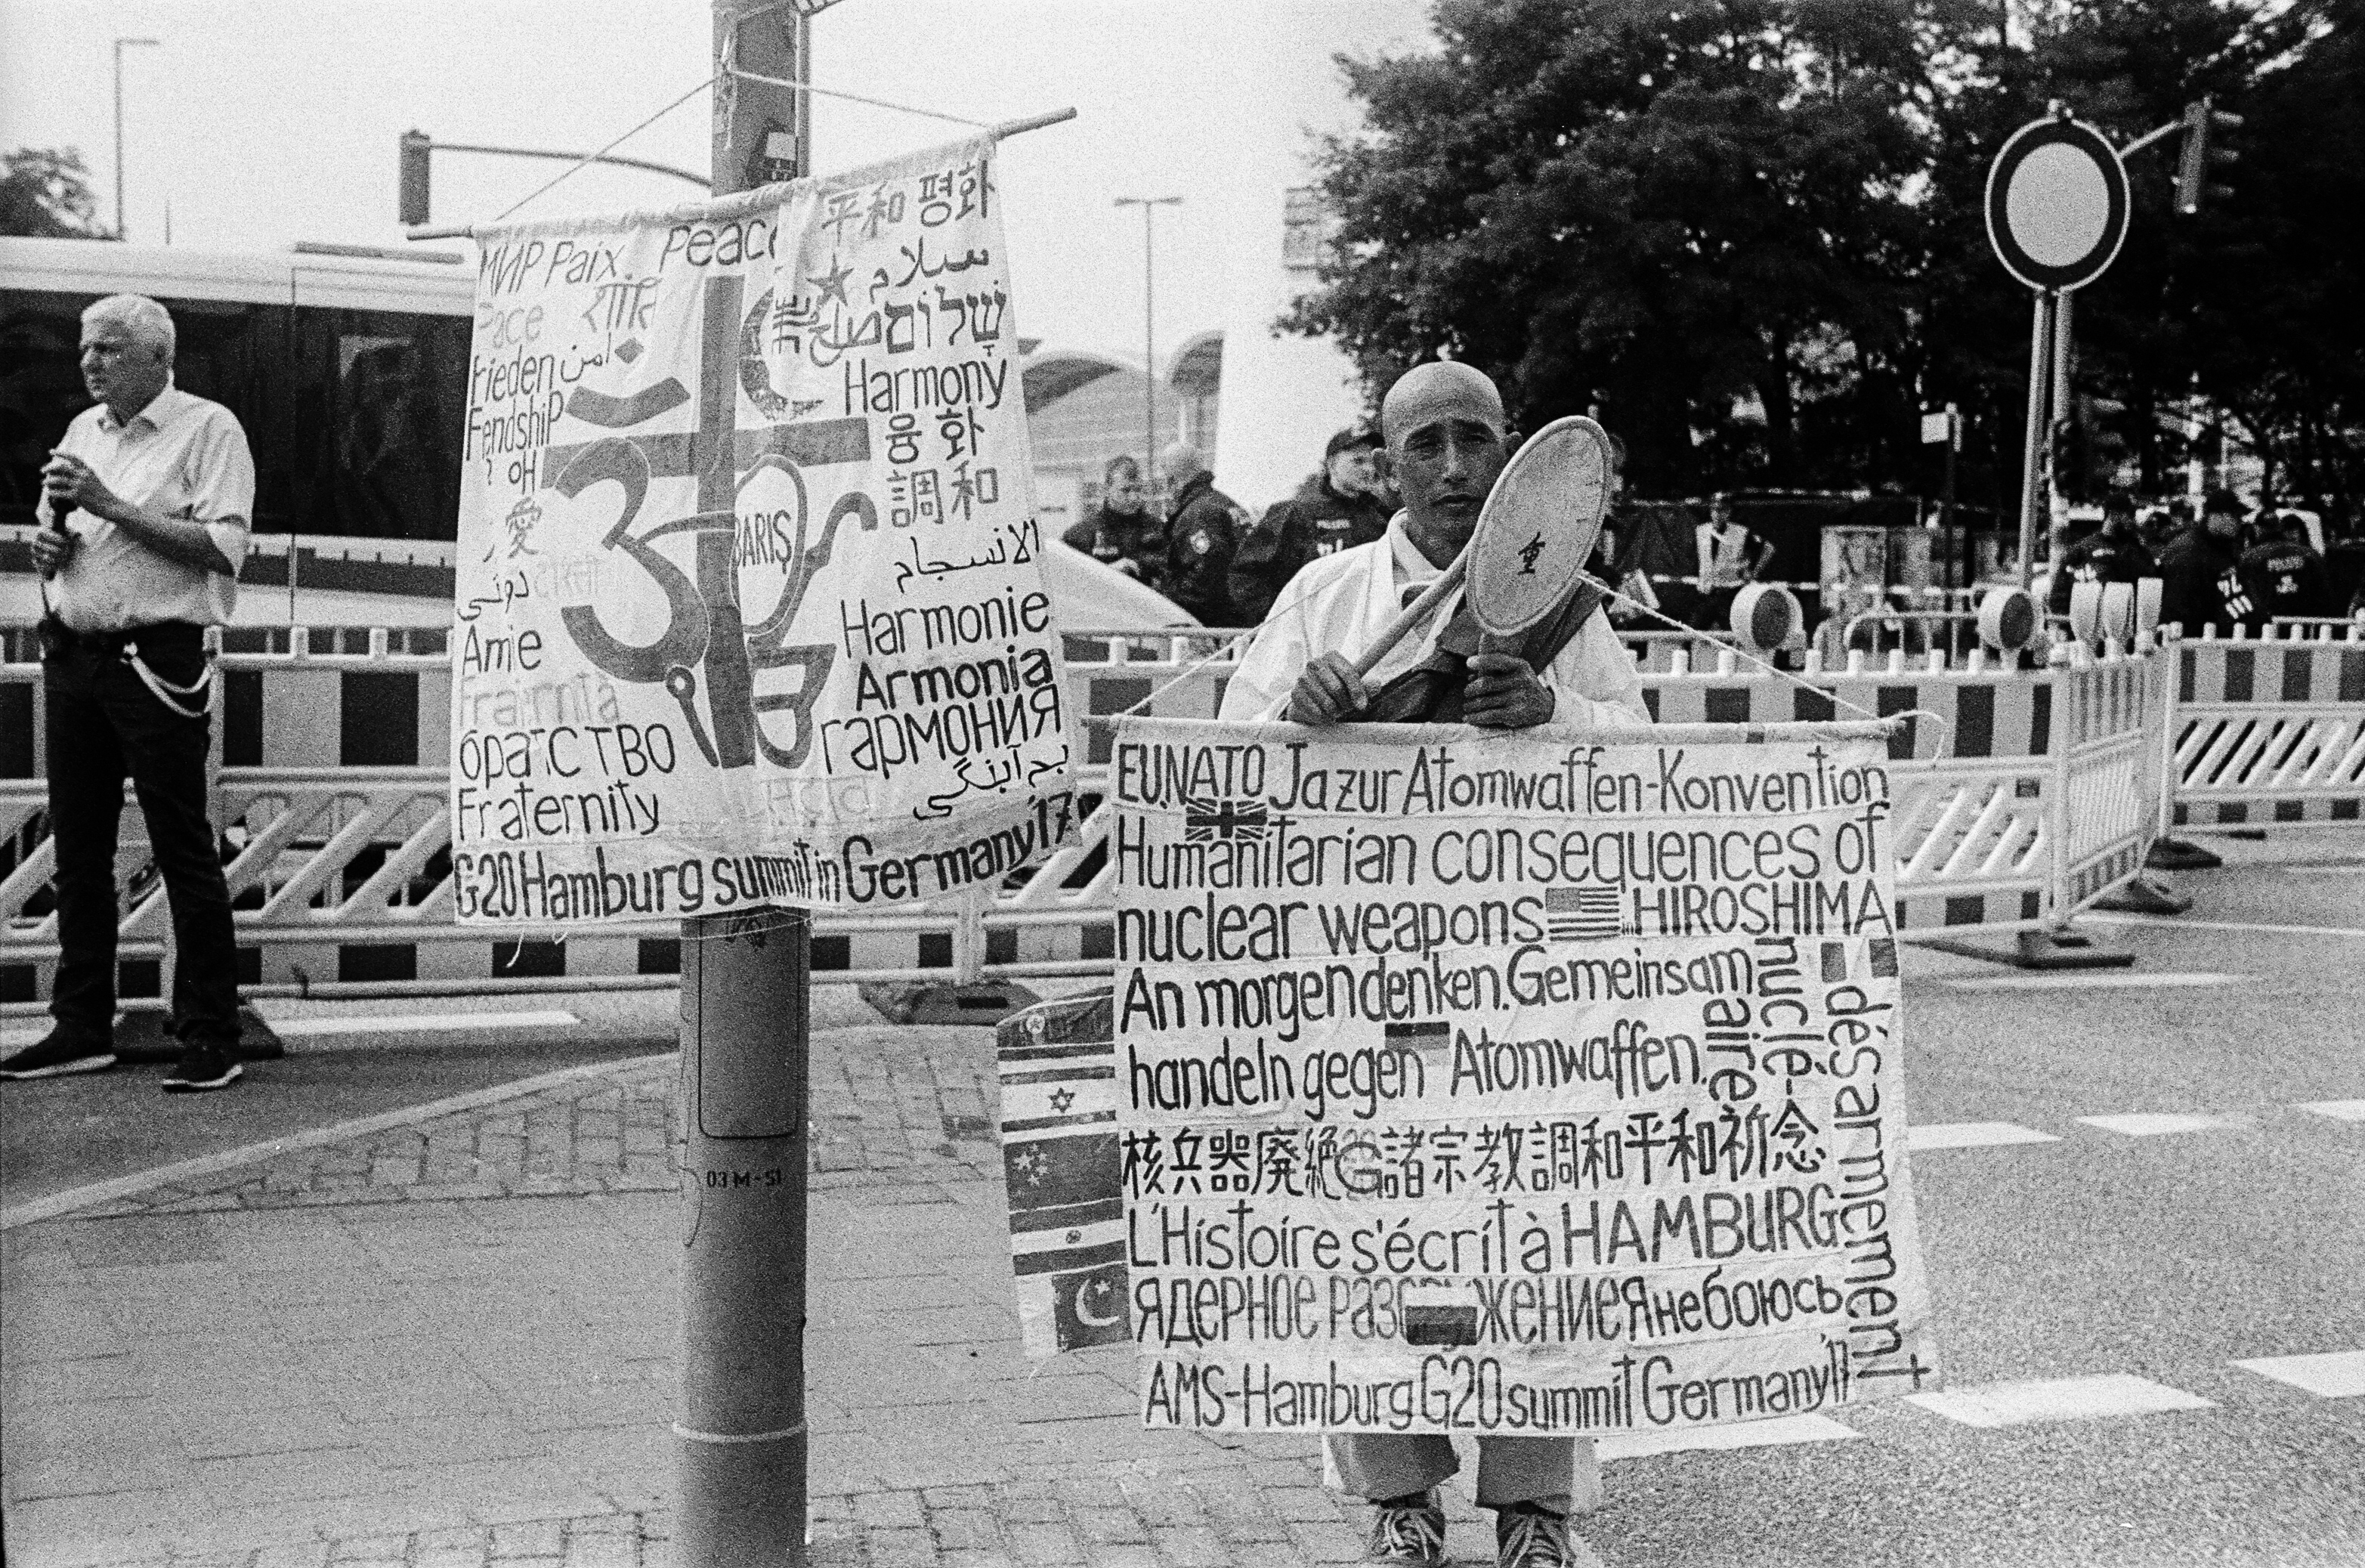 МИР Paix Peace
शांति
Frieden
Fendship
امن
愛
دوستی
Amie
братство
Fraternity
平和 평화
سلام
שלום
صلح
Harmony
융화
調和
الانسجام
BARIŞ
Harmonie
Armonia
гармония
هم آهنگی
G20 Hamburg summit in Germany'17
EU.NATO Ja zur Atomwaffen-Konvention
Humanitarian consequences of
nuclear weapons in HIROSHIMA
An morgen denken. Gemeinsam
handeln gegen Atomwaffen.
désarmement
nuclé-
aire
核兵器廃絶 諸宗教調和平和祈念
L'Histoire s'écrit à HAMBURG
ядерное раз жение Я не боюсь
AMS-Hamburg G20 summit Germany'17
03M-51
POLIZEI